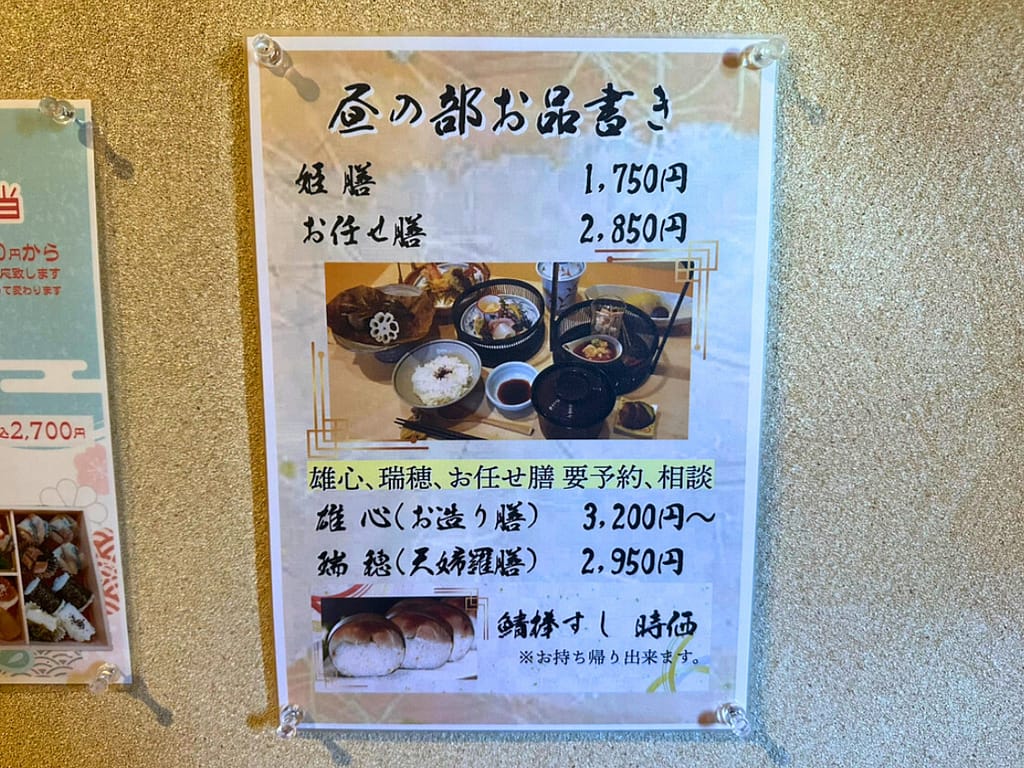 昼の部お品書き
姫 膳 1,750円
お任せ膳 2,850円
雄心、瑞穂、お任せ膳 要予約、相談
雄 心(お造り膳) 3,200円～
瑞 穂(天婦羅膳) 2,950円
鯖棒すし 時価
※お持ち帰り出来ます。
当
0円から
応致します
て変わります
込2,700円